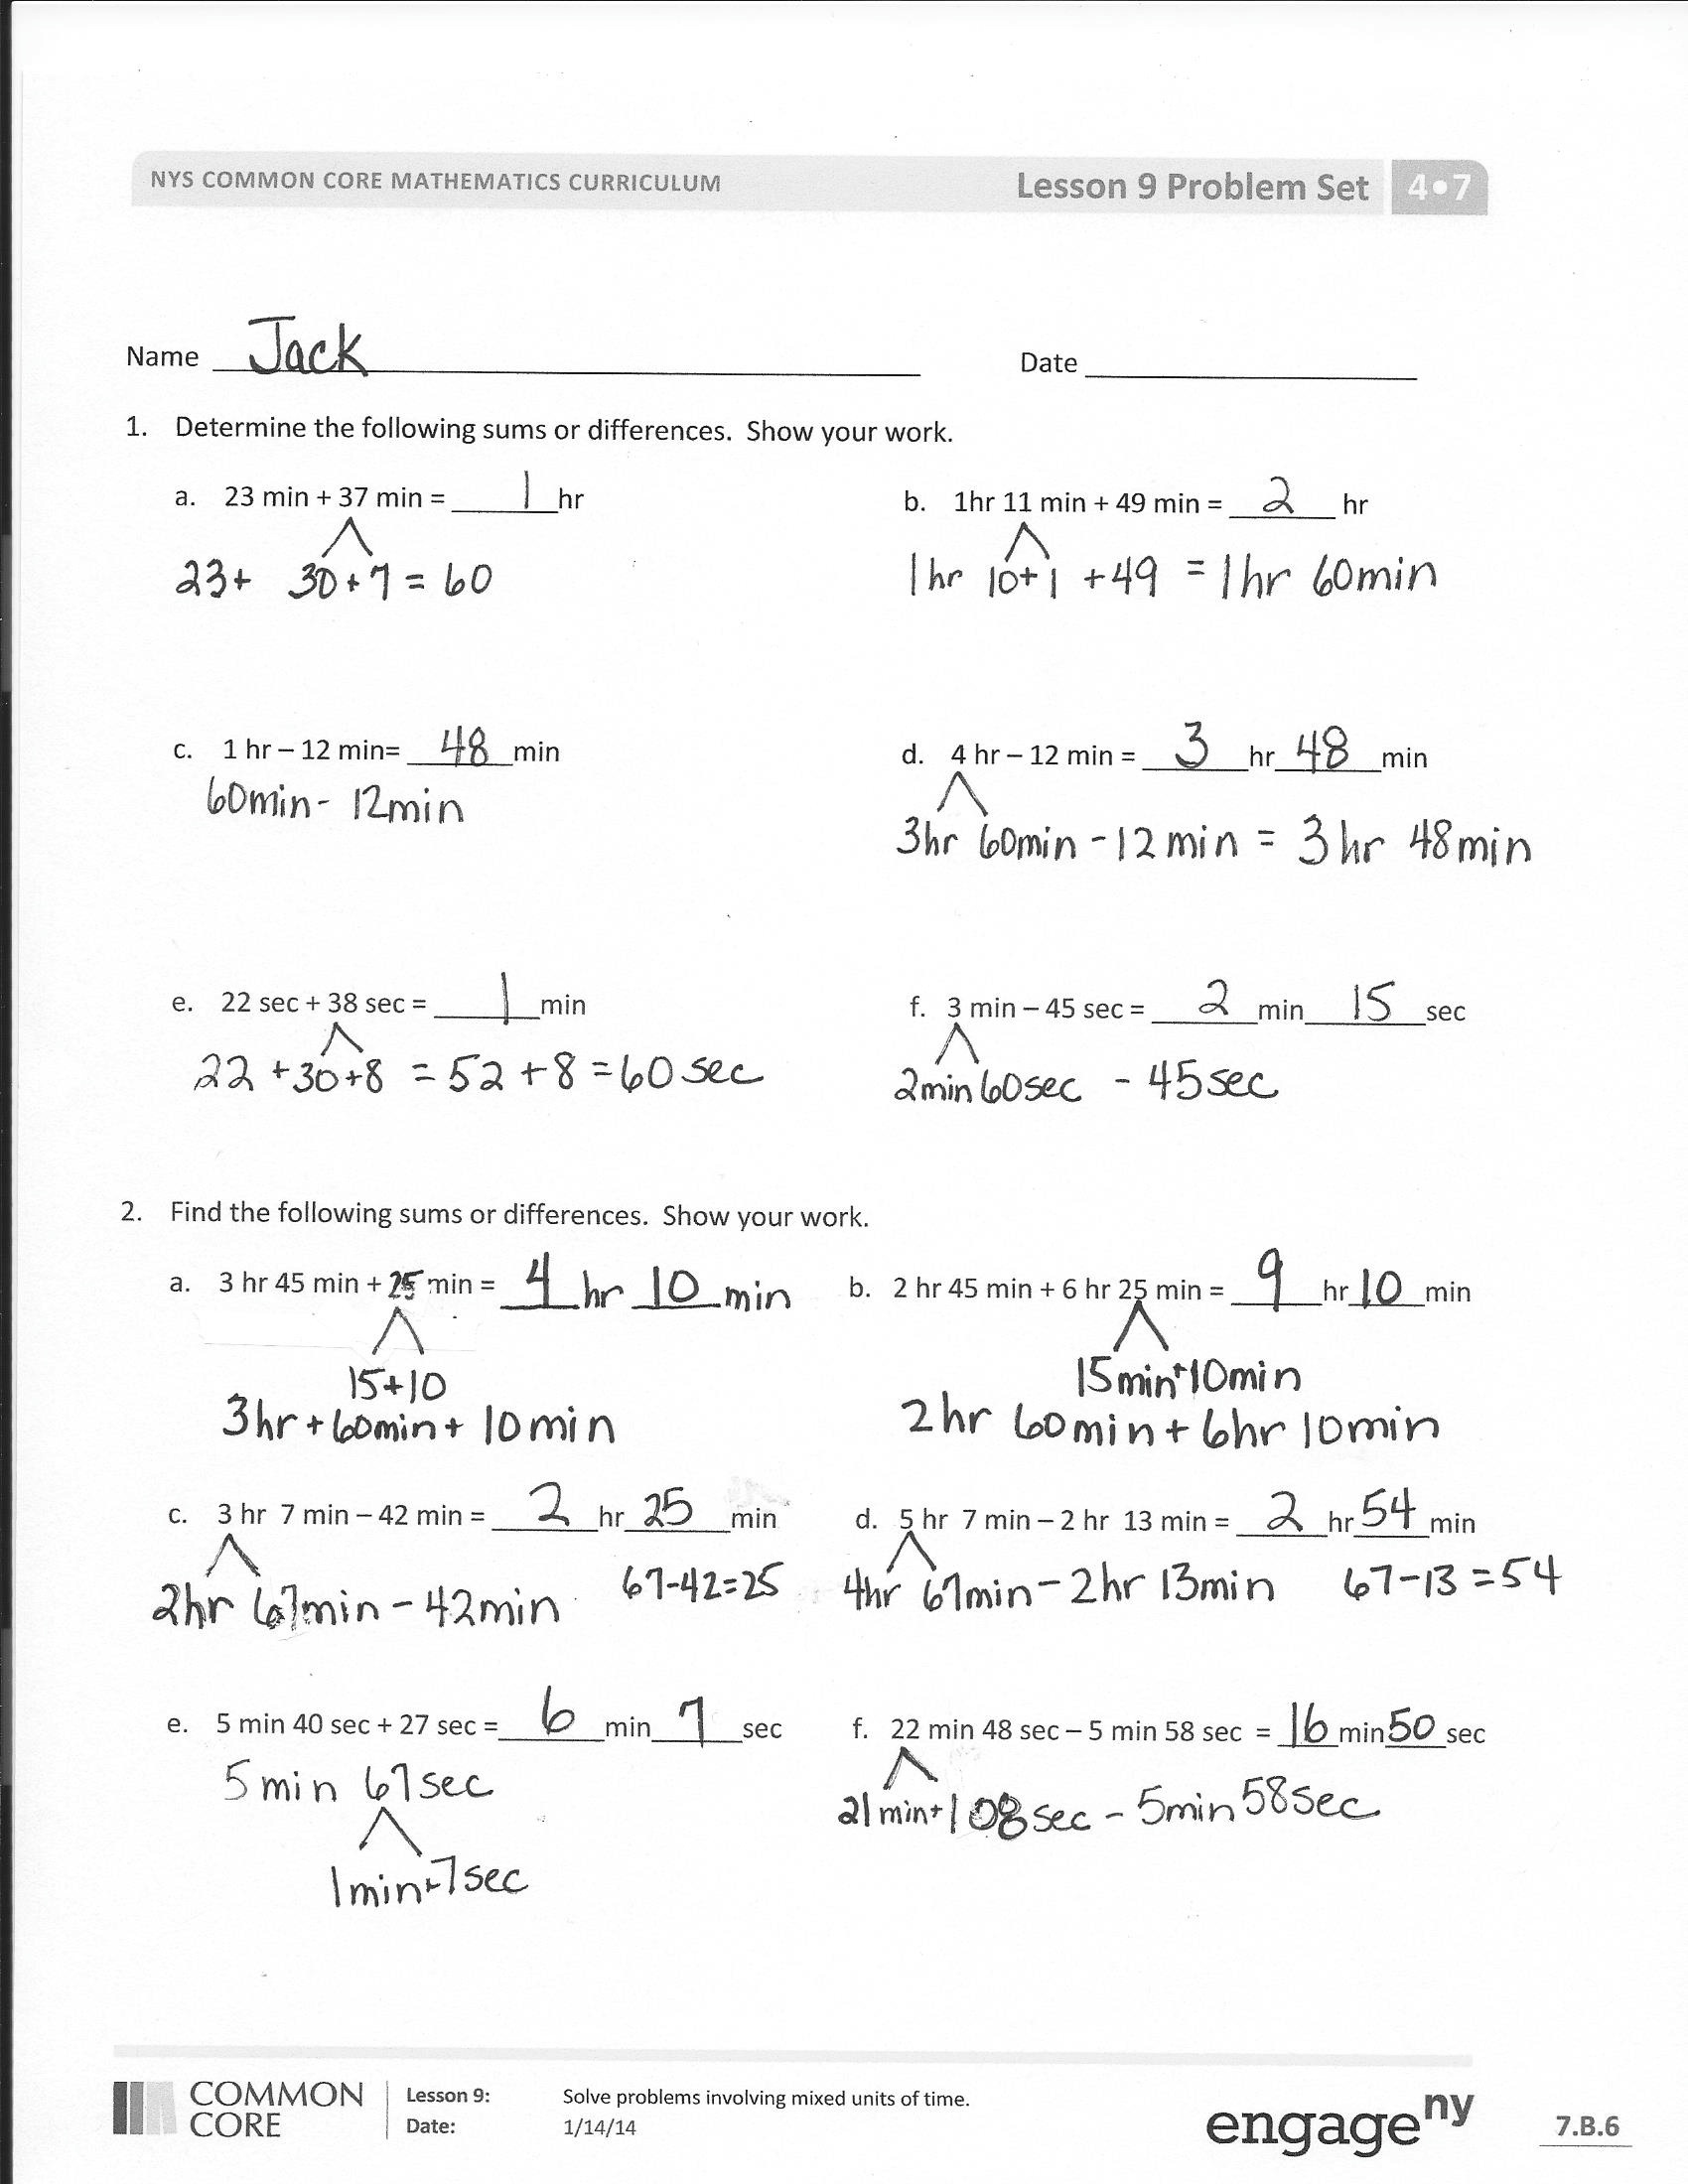 NYS COMMON CORE MATHEMATICS CURRICULUM Lesson 9 Problem Set 4•7
Name Jack Date
1. Determine the following sums or differences. Show your work.
a. 23 min + 37 min = 1 hr
23+ 30+7 = 60
b. 1hr 11 min + 49 min = 2 hr
1hr 10+1 +49 = 1hr 60min
c. 1 hr – 12 min= 48 min
60min- 12min
d. 4 hr – 12 min = 3 hr 48 min
3hr 60min -12 min = 3 hr 48min
e. 22 sec + 38 sec = 1 min
22 +30+8 = 52 +8 =60 sec
f. 3 min – 45 sec = 2 min 15 sec
2min 60sec - 45 sec
2. Find the following sums or differences. Show your work.
a. 3 hr 45 min + 25 min = 4 hr 10 min
15+10
3hr + 60min + 10 min
b. 2 hr 45 min + 6 hr 25 min = 9 hr 10 min
15min+10min
2hr 60min + 6hr 10min
c. 3 hr 7 min – 42 min = 2 hr 25 min
2hr 67min - 42min 67-42=25
d. 5 hr 7 min – 2 hr 13 min = 2 hr 54 min
4hr 67min - 2hr 13min 67-13 =54
e. 5 min 40 sec + 27 sec = 6 min 7 sec
5 min 67sec
1min+7sec
f. 22 min 48 sec – 5 min 58 sec = 16 min 50 sec
21min+108sec - 5min 58sec
COMMON
CORE
Lesson 9: Solve problems involving mixed units of time.
Date: 1/14/14
engageny
7.B.6